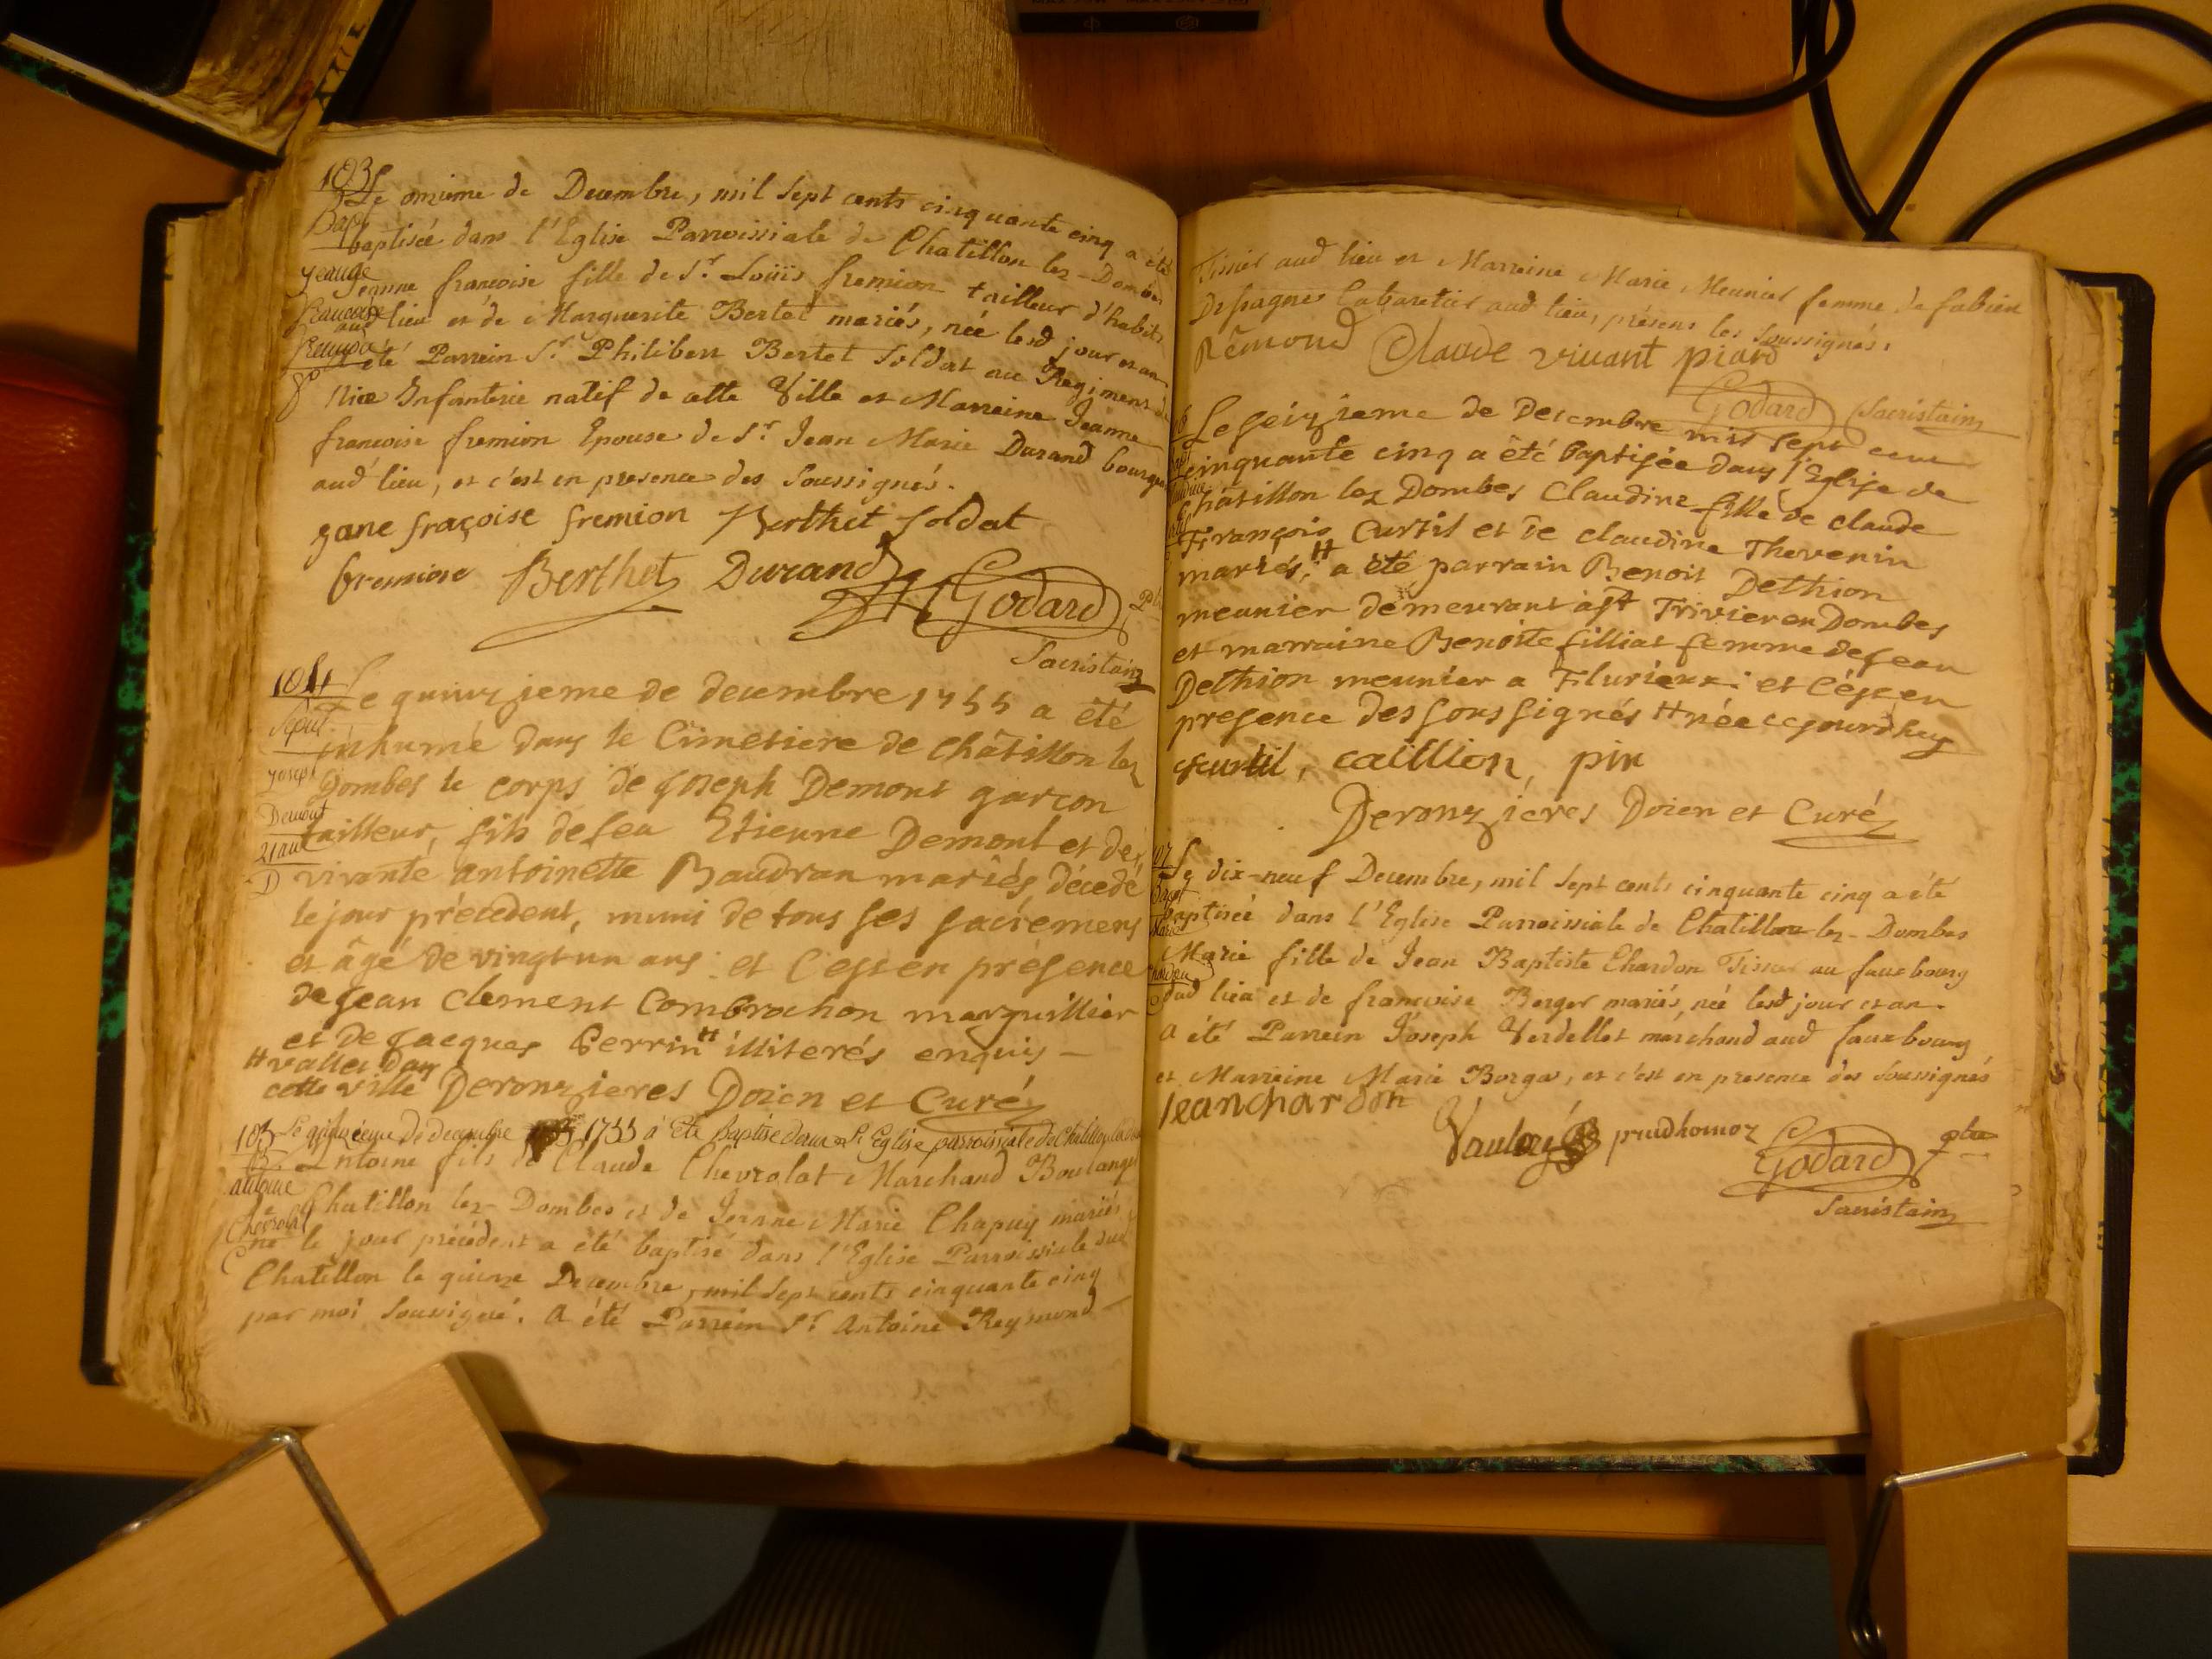 103
Le onzieme de Decembre, mil sept cents cinquante cinq a été
Bap
baptisée dans l'Eglise Parroissiale de Chatillon lez-Dombes
jeanne francoise fille de Sr. Loüis fremion tailleur d'habits
francoise
aud lieu et de Marguerite Bertet mariés, née lesd jour et an
a été Parrein Sr. Philibert Bertet Soldat au Regiment de
Nice Infanterie natif de cette Ville et Marreine Jeanne
francoise fremion Epouse de Sr. Jean Marie Durand bourgeois
aud lieu, et c'est en presence des Soussignés.
gane fraçoise fremion Berthet soldat
fremion Berthet Durand
Godard
Sacristain
104
Le quinzieme de decembre 1755 a été
Sepul.
inhumé dans le Cimetiere de Châtillon lez
joseph
Dombes le corps de Joseph Demont garçon
Demont
tailleur, fils de feu Etienne Demont et de
21 an
vivante antoinette Baudran mariés décedé
D
le jour précedent, muni de tous ses sacremens
et âgé de vingt un ans: et C'est en présence
de Jean Clement Combrochon marguillier
et de Jacques Perrin # illiterés enquis -
# vallet dans
cette ville Deronzieres Doien et Curé
105 Le quinzieme de decembre 1755 a été Baptisé dans L'Eglise parroissiale de Chatillon
B.
Antoine fils de Claude Chevrolat Marchand Boulanger
antoine
Chatillon lez-Dombes et de Jeanne Marie Chapuy mariés
Chevrolat
né le jour précédent a été baptisé dans l'Eglise Parroissiale dud
Chatillon le quinze Decembre, mil sept cents cinquante cinq
par moi soussigné. a été Parrein Sr. Antoine Reymond
Tissier aud lieu et Marreine Marie Meunier femme de fabien
Despagnes Cabaretier aud lieu, présens les soussignés.
Rêmond Claude vivant piard
Godard Sacristain
Le seizieme de Decembre mil sept cens
cinquante cinq a été Baptisée dans l'Eglise de
Châtillon lez Dombes Claudine fille de claude
François Curtil et de claudine Thevenin
mariés, # a été parrain Benoit Dethion
meunier demeurant à St Trivier en Dombes
et marraine Benoite filliat femme de Jean
Dethion meunier a Flurieux: et C'est en
presence des soussignés # née cejourd'huy
Curtil, caillion, pin
Deronzieres Doien et Curé
107
Le dix-neuf Decembre, mil sept cents cinquante cinq a été
Bapt
baptisée dans l'Eglise Parroissiale de Chatillon lez-Dombes
Marie
Marie fille de Jean Baptiste Chardon Tissier au fauxbourg
dud lieu et de francoise Berger mariés, née lesd jour et an.
a été Parrein Joseph Verdellet marchand aud fauxbourg
et Marreine Marie Berger, et c'est en presence des Soussignés
Jean chardon
prudhomor
Godard ptre
Sacristain